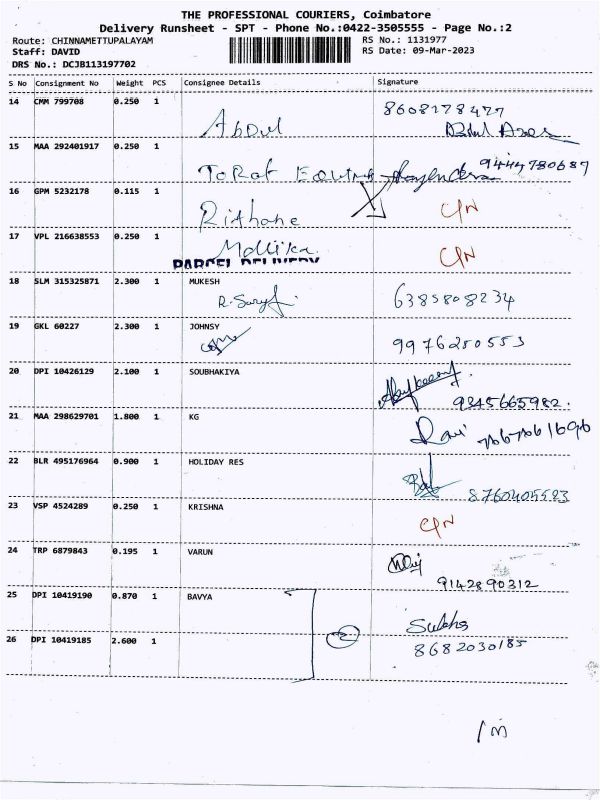 THE PROFESSIONAL COURIERS, Coimbatore
Delivery Runsheet - SPT - Phone No.:0422-3505555 - Page No.:2
Route: CHINNAMETTUPALAYAM RS No.: 1131977
Staff: DAVID RS Date: 09-Mar-2023
DRS No.: DCJB113197702
S No Consignment No Weight PCS Consignee Details Signature
14 CMM 799708 0.250 1 Abdul 8608178477
15 MAA 292401917 0.250 1 9444780687
16 GPM 5232178 0.115 1 C/N
17 VPL 216638553 0.250 1 Mollika C/N
PARCEL DELIVERY
18 SLM 315325871 2.300 1 MUKESH 6385808234
19 GKL 60227 2.300 1 JOHNSY 9976250553
20 DPI 10426129 2.100 1 SOUBHAKIYA
9345665982.
21 MAA 298629701 1.800 1 KG Ravi
22 BLR 495176964 0.900 1 HOLIDAY RES
8760405523
23 VSP 4524289 0.250 1 KRISHNA C/N
24 TRP 6879843 0.195 1 VARUN
9142890312
25 DPI 10419190 0.870 1 BAVYA
26 DPI 10419185 2.600 1 2 8682030185